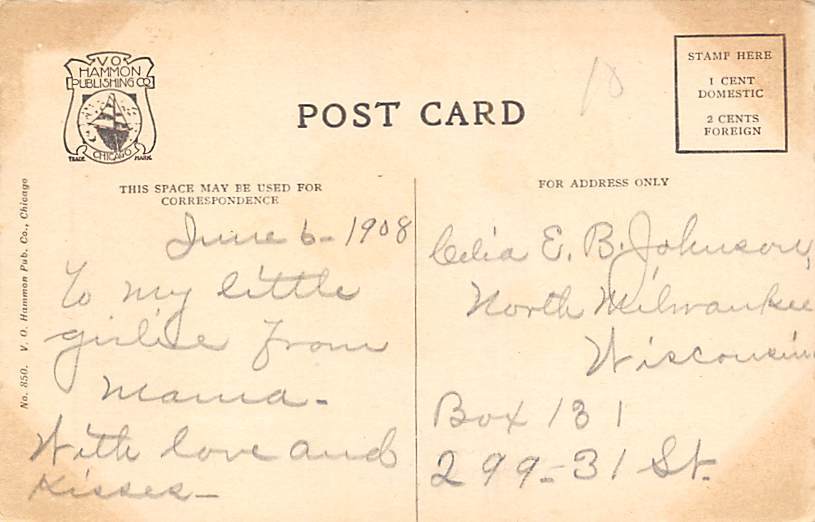 V. O.
HAMMON
PUBLISHING CO
CHICAGO
TRADE MARK
POST CARD
STAMP HERE
1 CENT
DOMESTIC
2 CENTS
FOREIGN
No. 850. V. O. Hammon Pub. Co., Chicago
THIS SPACE MAY BE USED FOR
CORRESPONDENCE
June 6-1908
To my little
girlie from
Mama-
With love and
Kisses-
FOR ADDRESS ONLY
Celia E. B. Johnson,
North Milwaukee
Wisconsin
Box 131
299-31 St.